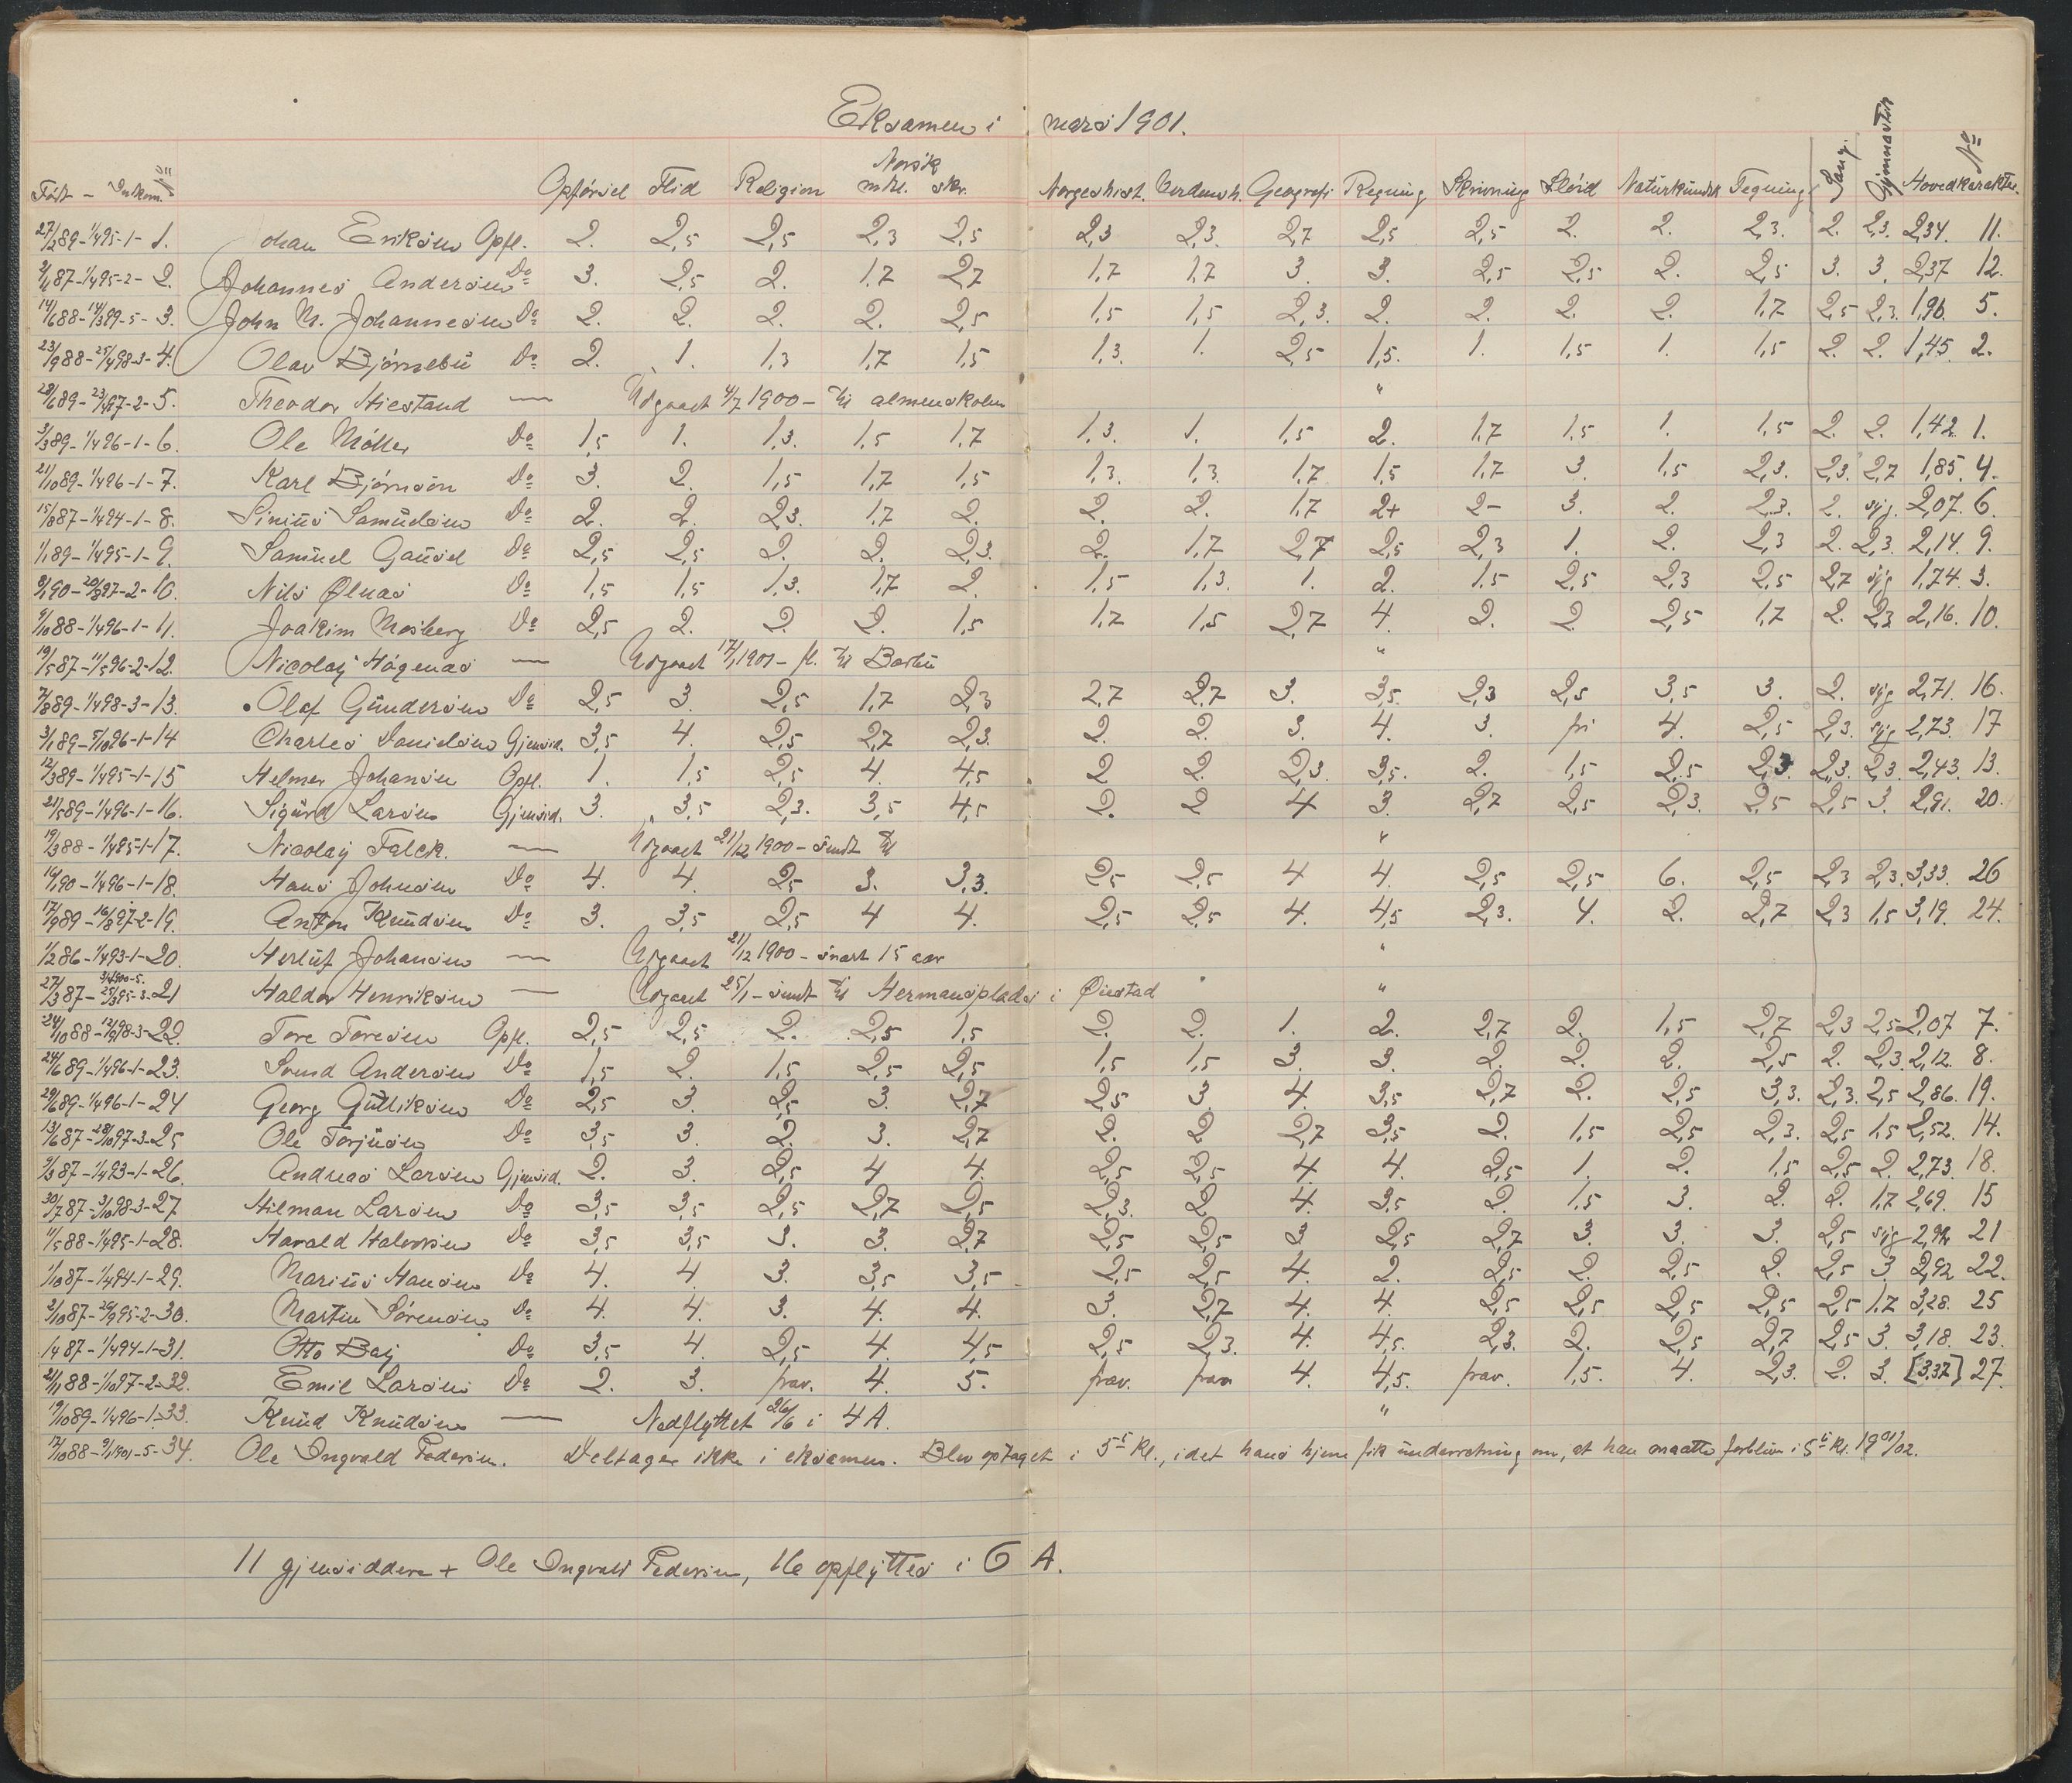 Eksamen i mars 1901.
Født - Indkom. No Opførsel Flid Religion Norsk mtl. skr. Norgeshist. Verdensh. Geografi Regning Skrivning Sløid Naturkundsk Tegning Sang. Gymnastik Hovedkarakter. No
27/2 89 - 1/4 95 - 1 - 1. Johan Eriksen Opfl. 2. 2,5 2,5 2,3 2,5 2,3 2,3. 2,7 2,5 2,5 2. 2. 2,3. 2. 2,3. 2,34. 11.
87 - 1/4 95 - 2 - 2. Johannes Andersen Do 3. 2,5 2. 1,7 2,7 1,7 1,7 3. 3. 2,5 2,5 2. 2,5 3. 3. 2,37 12.
14/6 88 - 14/3 99 - 5 - 3. John M. Johannesen Do 2. 2. 2. 2. 2,5 1,5 1,5 2,3. 2. 2. 2. 2. 1,7 2,5 2,3. 1,96. 5.
23/9 88 - 25/4 98 - 3 - 4. Olav Bjørnebu Do 2. 1. 1,3 1,7 1,5 1,3. 1. 2,5 1,5. 1. 1,5 1. 1,5 2. 2. 1,45. 2.
28/6 89 - 23/4 97 - 2 - 5. Theodor Hiestand — Udgaaet 4/7 1900 - til almenskolen "
3/3 89 - 1/4 96 - 1 - 6. Ole Møller Do 1,5 1. 1,3. 1,5 1,7 1,3. 1. 1,5 2. 1,7 1,5 1. 1,5 2. 2. 1,42 1.
21/10 89 - 1/4 96 - 1 - 7. Karl Bjørnson Do 3. 2. 1,5 1,7 1,5 1,3 1,3. 1,7 1,5 1,7 3. 1,5 2,3. 2,3 2,7 1,85. 4.
15/8 87 - 1/4 94 - 1 - 8. Sinius Samuelsen Do 2. 2. 2,3. 1,7 2. 2. 2. 1,7 2+ 2- 3. 2. 2,3. 2. syg. 2,07. 6.
1/1 89 - 1/4 95 - 1 - 9. Samuel Gausel Do 2,5 2,5 2. 2. 2,3. 2. 1,7 2,7 2,5 2,3 1. 2. 2,3 2. 2,3. 2,14. 9.
90 - 20/8 97 - 2 - 10. Nils Ølnas Do 1,5 1,5 1,3. 1,7 2. 1,5 1,3. 1. 2. 1,5 2,5 2,3 2,5 2,7 syg 1,74. 3.
9/10 88 - 1/4 96 - 1 - 11. Joakim Mosberg Do 2,5 2. 2. 2. 1,5 1,7 1,5 2,7 4. 2. 2. 2,5 1,7 2. 2,3 2,16. 10.
19/5 87 - 11/5 96 - 2 - 12. Nicolay Høgenas — Udgaaet 17/1 1901 - fl. til Barbu "
7/8 89 - 1/4 98 - 3 - 13. Olaf Gundersen Do 2,5 3. 2,5 1,7 2,3 2,7 2,7 3. 3,5. 2,3 2,5 3,5 3. 2. syg 2,71. 16.
3/1 89 - 5/10 96 - 1 - 14 Charles Danielsen Gjensid. 3,5 4. 2,5 2,7 2,3. 2. 2. 3. 4. 3. fri 4. 2,5 2,3. syg 2,73. 17
12/3 89 - 1/4 95 - 1 - 15 Helmer Johansen Opfl. 1. 1,5 2,5 4. 4,5 2 2. 2,3. 3,5. 2. 1,5 2,5 2,3. 2,3. 2,3. 2,43. 13.
21/5 89 - 1/4 96 - 1 - 16. Sigurd Larsen Gjensid. 3. 3,5 2,3. 3,5 4,5 2. 2 4 3. 2,7 2,5 2,3. 2,5 2,5 3. 2,91. 20.
19/3 88 - 1/4 95 - 1 - 17. Nicolay Falck. — Udgaaet 21/12 1900 - sendt til "
16/1 90 - 1/4 96 - 1 - 18. Hans Johnsen Do 4. 4. 2,5 3. 3,3. 2,5 2,5 4 4. 2,5 2,5 6. 2,5 2,3 2,3. 3,33. 26
17/9 89 - 16/8 97 - 2 - 19. Anton Knudsen Do 3. 3,5 2,5 4 4. 2,5 2,5 4. 4,5 2,3. 4. 2. 2,7 2,3 1,5 3,19. 24.
1/2 86 - 1/4 93 - 1 - 20. Herluf Johansen — Udgaaet 21/12 1900 - snart 15 aar "
27/3 87 - 25/3 95 - 3 - 21 Haldor Henriksen — Udgaaet 25/1 - sendt til Hermansplads i Øiestad "
24/10 88 - 12/9 98 - 3 - 22. Tore Toresen Opfl. 2,5 2,5 2. 2,5 1,5 2. 2. 1. 2. 2,7 2. 1,5 2,7 2,3 2,5 2,07 7.
24/6 89 - 1/4 96 - 1 - 23. Svend Andersen Do 1,5 2. 1,5 2,5 2,5 1,5 1,5 3. 3. 2. 2. 2. 2,5 2. 2,3. 2,12. 8.
29/6 89 - 1/4 96 - 1 - 24 Georg Gulliksen Do 2,5 3. 2,5 3. 2,7 2,5 3. 4. 3,5 2,7 2. 2,5 3,3. 2,3. 2,5 2,86. 19.
13/6 87 - 28/10 97 - 3 - 25 Ole Torjusen Do 3,5 3. 2. 3. 2,7 2. 2 2,7 3,5 2. 1,5 2,5 2,3. 2,5 1,5 2,52. 14.
3/3 87 - 1/4 93 - 1 - 26. Andreas Larsen Gjensid. 2. 3. 2,5 4 4. 2,5 2,5 4. 4. 2,5 1. 2. 1,5 2,5 2. 2,73. 18.
30/7 87 - 3/10 98 - 3 - 27 Hilman Larsen Do 3,5 3,5 2,5 2,7 2,5 2,3. 2 4. 3,5 2. 1,5 3. 2. 2. 1,7 2,69. 15
11/5 88 - 1/4 95 - 1 - 28. Harald Halvorsen Do 3,5 3,5 3. 3. 2,7 2,5 2,5 3 2,5 2,7 3. 3. 3. 2,5 syg 21
1/10 87 - 1/4 94 - 1 - 29. Marius Hansen Do 4. 4. 3. 3,5 3,5 2,5 2,5 4. 2. 2,5 2. 2,5 2. 2,5 3. 2,92 22.
2/10 87 - 95 - 2 - 30. Martin Sørensen Do 4. 4. 3. 4. 4. 3. 2,7 4. 4. 2,5 2,5 2,5 2,5 2,5 1,7 3,28. 25
87 - 1/4 94 - 1 - 31. Otto Bay Do 3,5 4. 2,5 4. 4,5 2,5 2,3. 4. 4,5. 2,3. 2. 2,5 2,7 2,5 3. 3,18. 23.
21/1 88 - 1/10 97 - 2 - 32. Emil Larsen Do 2. 3. frav. 4. 5. frav. frav 4. 4,5. frav. 1,5. 4. 2,3. 2. 3. [3,37] 27.
19/10 89 - 1/4 96 - 1 - 33. Knud Knudsen — Nedflyttet 26/6 i 4A. "
17/10 88 - 9/1 1901 - 5 - 34. Ole Ingvald Pedersen. Deltager ikke i eksamen. Blev optaget i 5te Kl., idet hans hjem fik underretning om, at han maatte forblive i 5te Kl. 1901/02.
11 gjensiddere + Ole Ingvald Pedersen, 16 opflyttes i 6 A.